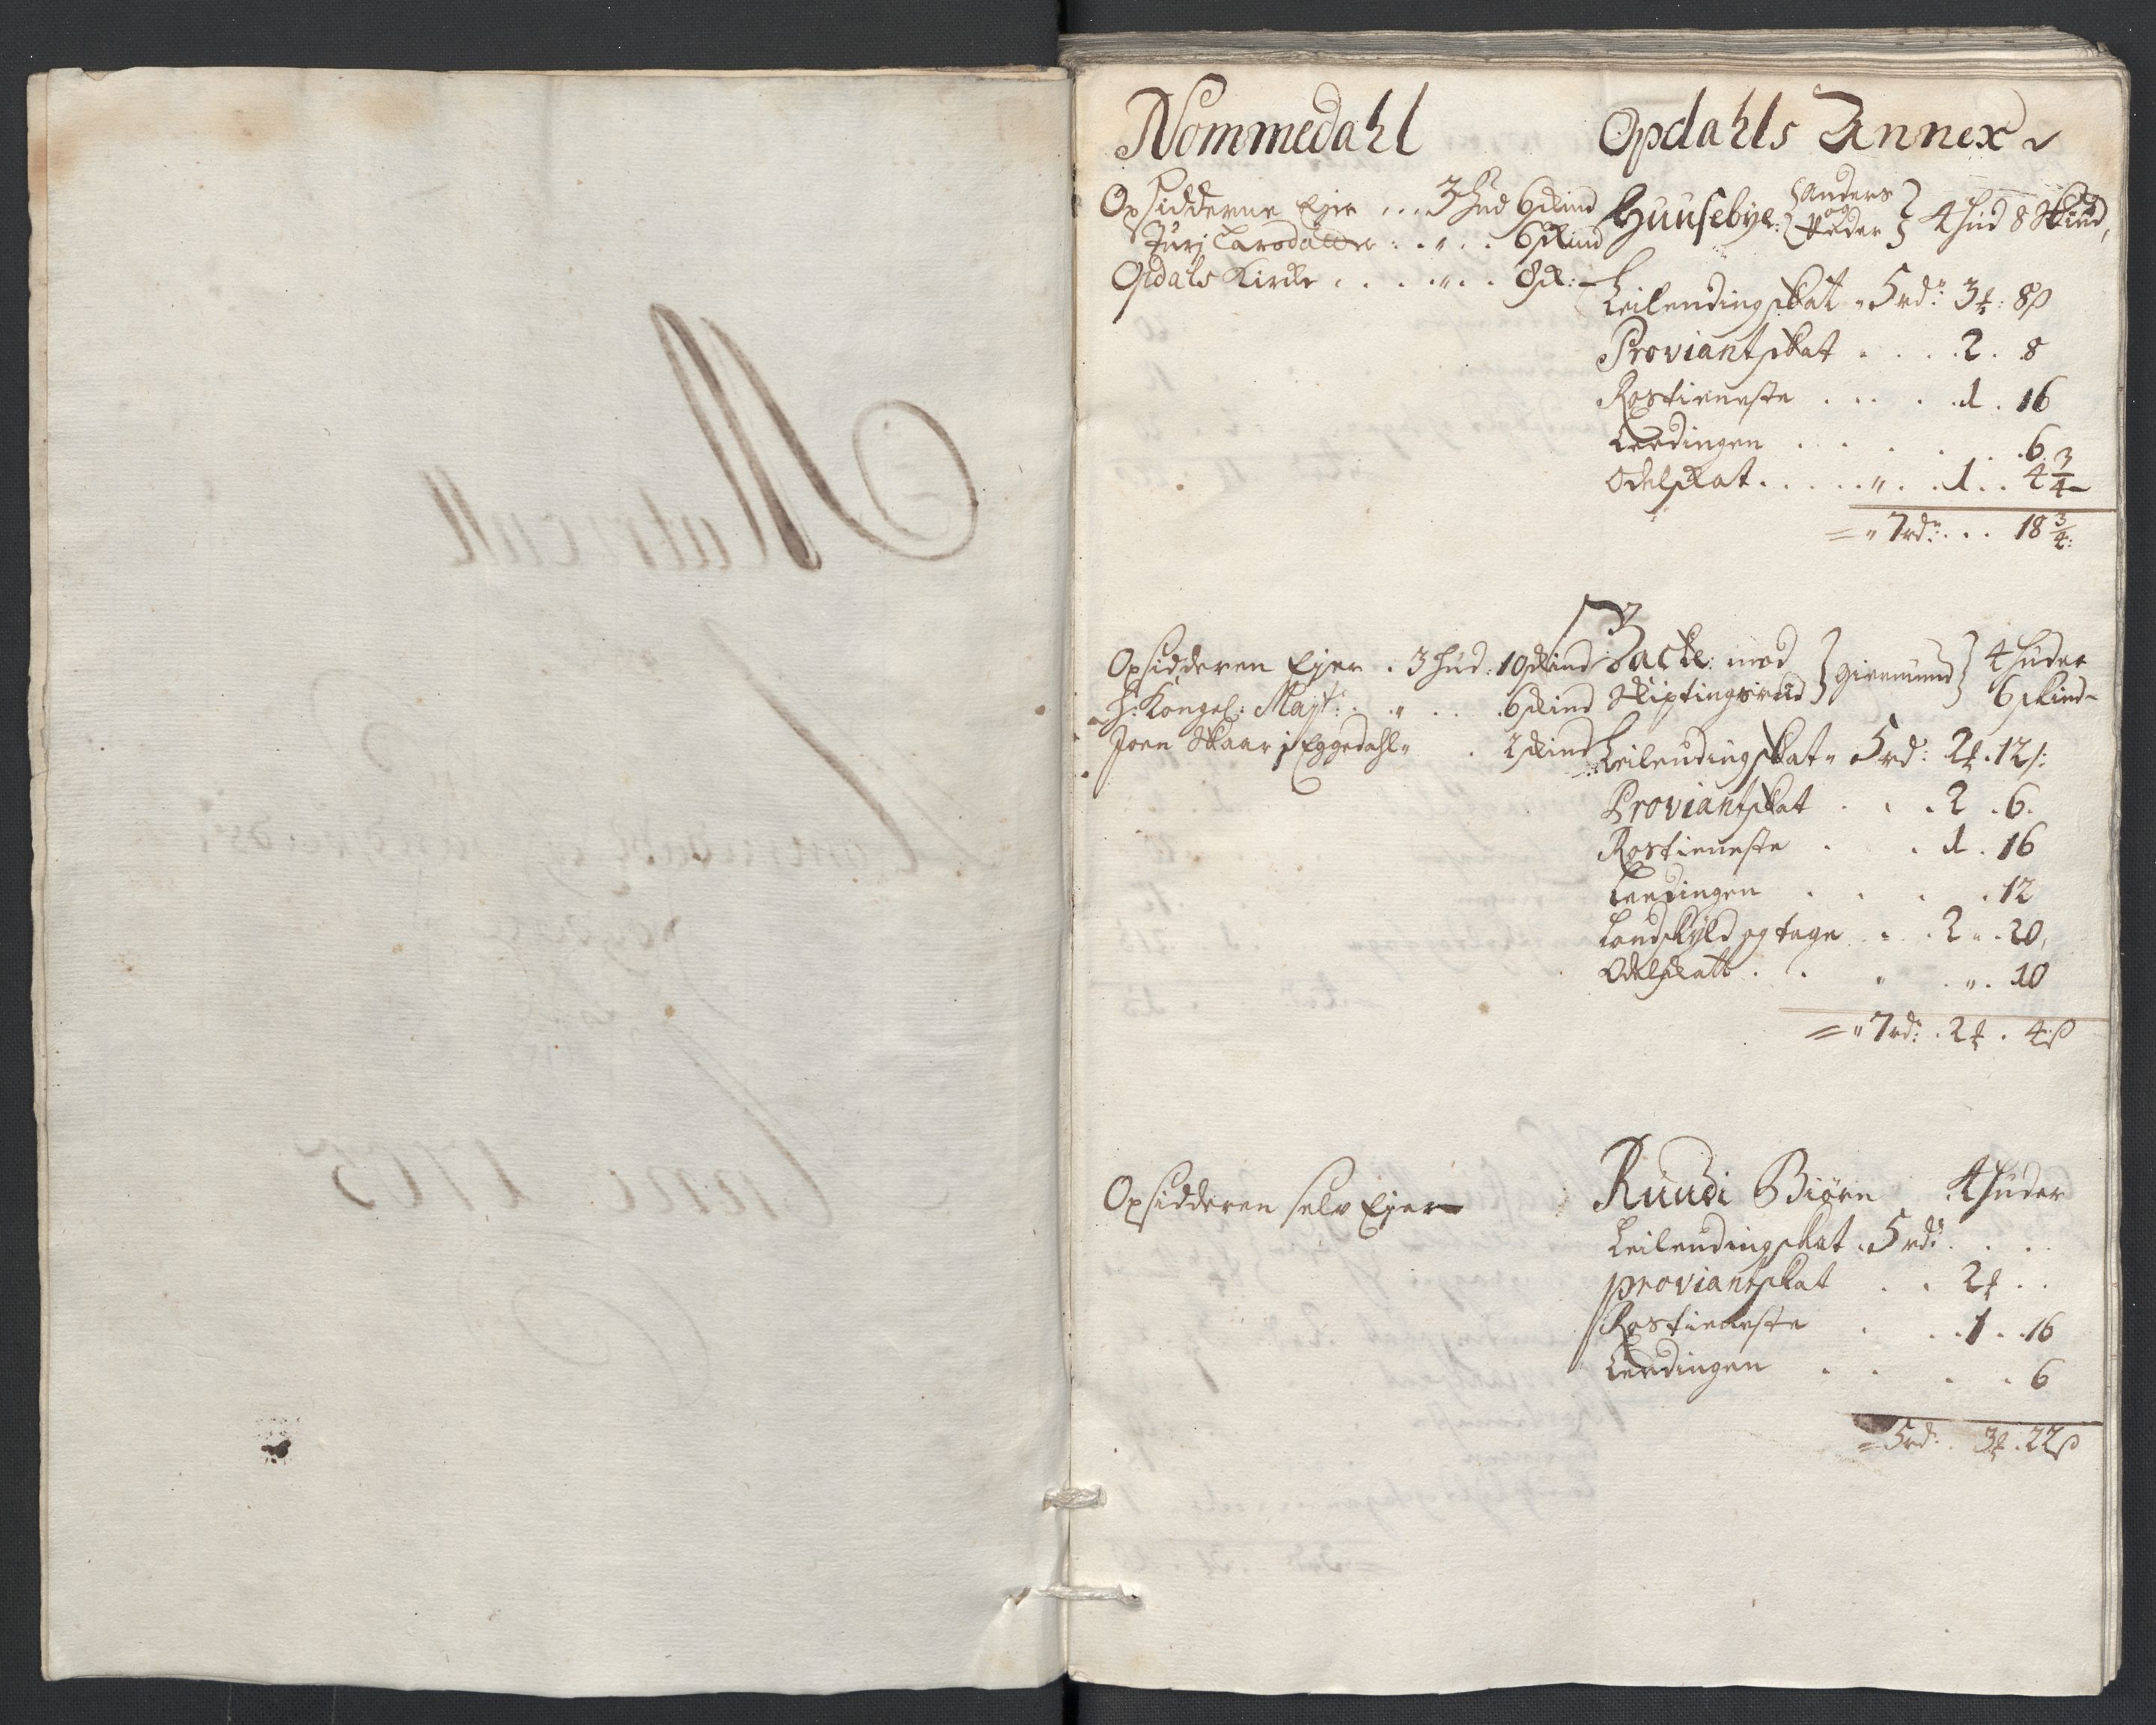 Nommedahl
Opdahls Annex
Opsidderne Ejer ... 3 hud 6 skind
Jurj Larsdatter . . " . . 6 skind
Opdals Kircke . . . . " . . 8 sk: -
Huusebye: Anders og Peder 4 hud 8 Skind
Leilendingskat " 5 rdr: 3 ƒ: 8 ß
Proviantskat . . . . 2 . 8
Rostieneste . . . . 1 . 16
Leedingen . . . . . . 6
Odelskat . . . . . " . . 1 . . 4 3/4
= " 7 rdr: . . . 18 3/4:
Opsidderen Ejer . 3 hud: 10 skind
H: Kongel: Mayt: . . " . . . 6 skind
Joen Skaar i Eggedahl " . 2 skind
Backe: mod Skiptingsrud Giermund 4 huder 6 skind -
Leilendingskat " 5 rd: 2 ƒ . 12 ß:
Proviantskat . . . 2 . 6.
Rostieneste . . 1 . 16
Leedingen . . . . 12
Landskyld og tage . . 2 " . 20,
Odelskatt . . " . " . 10
= " 7 rdr: . 2 ƒ . 4 ß
Opsidderen selv Ejer -
Ruudi Biørn 4 huder
Leilendingskat . 5 rdr . . .
proviantskat . . 2 ƒ . .
Rostieneste . . . 1 . . 16
Leedingen . . . . 6
= 5 rdr: . 3 ƒ . 22 ß